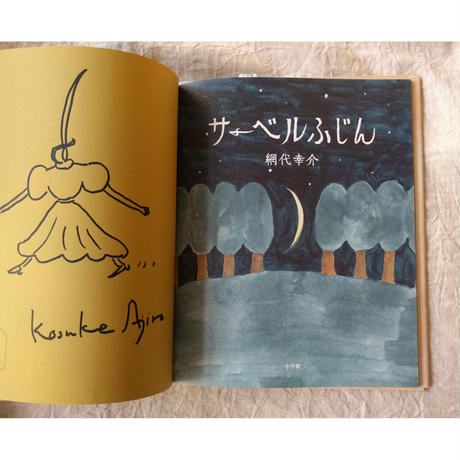 Kosuke Ajiro
サーベルふじん
網代幸介
小学館